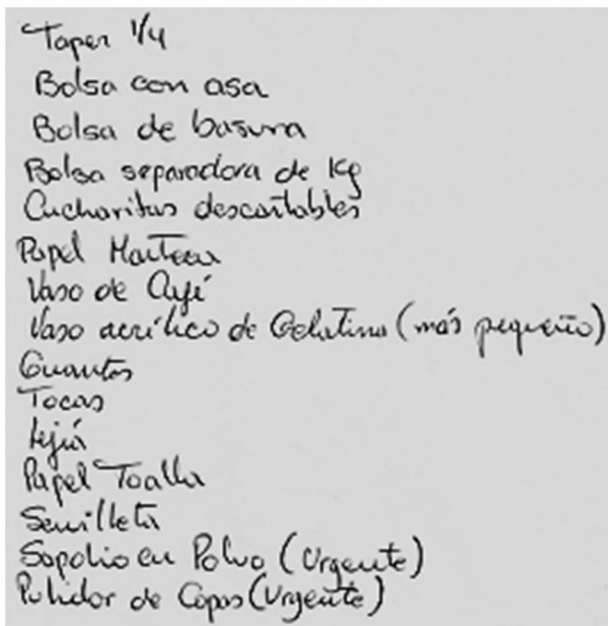 Taper 1/4
Bolsa con asa
Bolsa de basura
Bolsa separadora de Kg
Cucharitas descartables
Papel Manteca
Vaso de Café
Vaso acrílico de Gelatina (más pequeño)
Guantes
Tocas
Lejía
Papel Toalla
Servilleta
Sapolio en Polvo (Urgente)
Pulidor de Copas (Urgente)